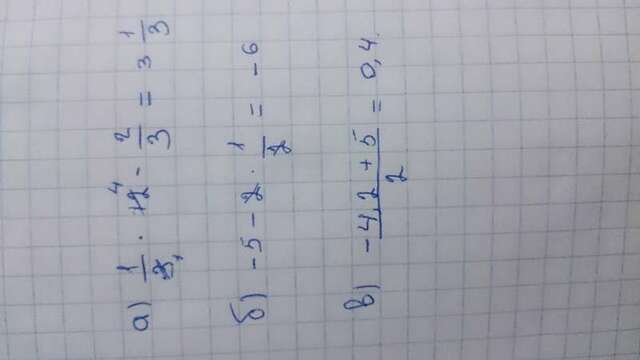 а) 1/3 1 · 12 4 - 2/3 = 3 1/3
б) -5 - 2 · 1/2 = -6
в) (-4,2 + 5)/2 = 0,4